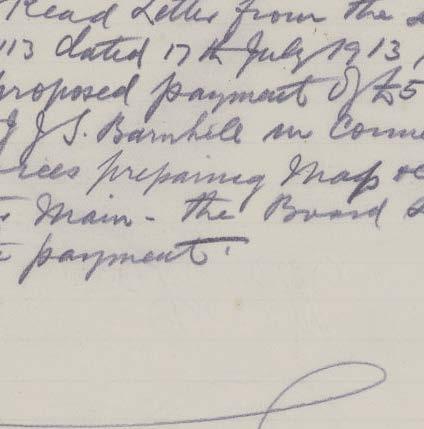 Read Letter from the
113 dated 17th July 1913
proposed payment of £5
J. S. Barnhill in Conne
ices preparing Map
Main - the Board
payment.